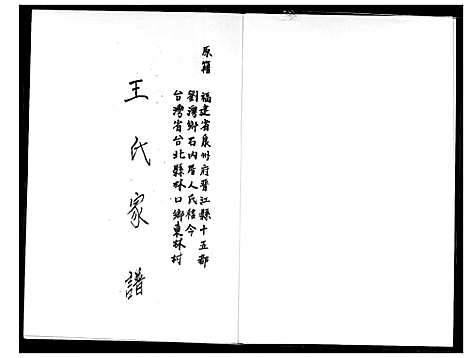 原籍 福建省泉州府晉江縣十五都
劉灣鄉石內居人氏徙今
台灣省台北縣林口鄉東林村
王氏家譜